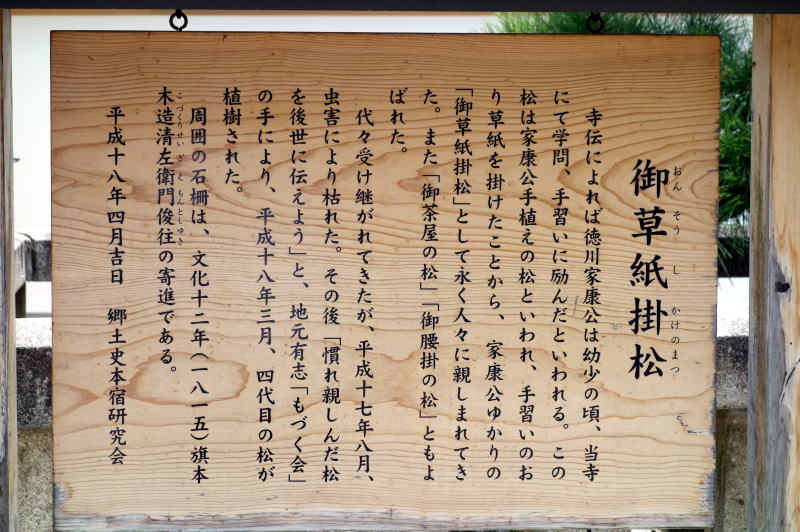 御草紙掛松
おんそうしかけのまつ
寺伝によれば徳川家康公は幼少の頃、当寺
にて学問、手習いに励んだといわれる。この
松は家康公手植えの松といわれ、手習いのお
り草紙を掛けたことから、家康公ゆかりの
「御草紙掛松」として永く人々に親しまれてき
た。また「御茶屋の松」「御腰掛の松」ともよ
ばれた。
代々受け継がれてきたが、平成十七年八月、
虫害により枯れた。その後「慣れ親しんだ松
を後世に伝えよう」と、地元有志「もづく会」
の手により、平成十八年三月、四代目の松が
植樹された。
周囲の石柵は、文化十二年(一八一五)旗本
木造清左衛門俊往の寄進である。
こづくりせいざえもんとしゆき
平成十八年四月吉日 郷土史本宿研究会